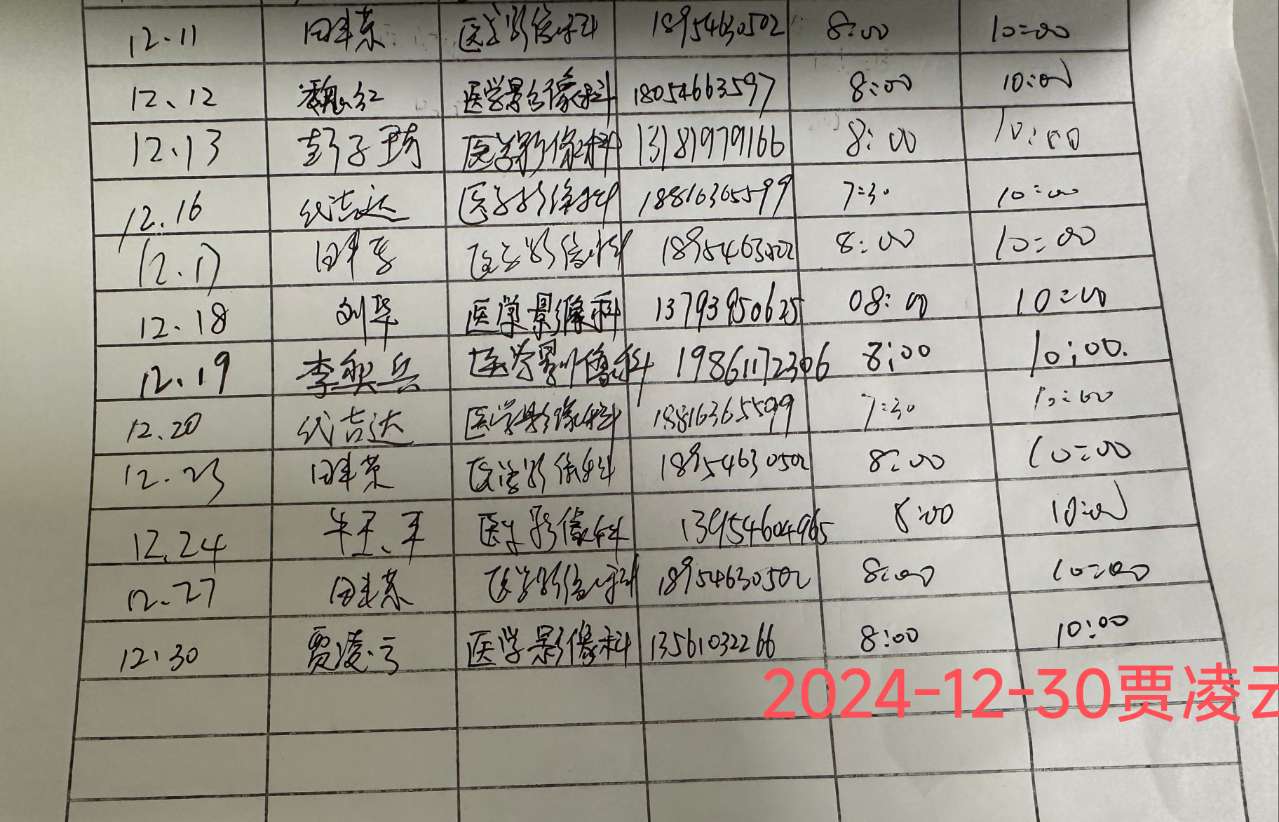 12.11 田丰荣 医学影像科 18954630502 8:00 10:00
12.12 魏红 医学影像科 18054663597 8:00 10:00
12.13 彭子琦 医学影像科 13181979166 8:00 10:00
12.16 代吉达 医学影像科 18816365599 7:30 10:00
12.17 田丰荣 医学影像科 18954630502 8:00 10:00
12.18 刘华 医学影像科 13793950625 08:00 10:00
12.19 李奕兵 医学影像科 19861172306 8:00 10:00.
12.20 代吉达 医学影像科 18816365599 7:30 10:00
12.23 田丰荣 医学影像科 18954630502 8:00 10:00
12.24 医学影像科 13954604965 8:00 10:00
12.27 田丰荣 医学影像科 18954630502 8:00 10:00
12.30 贾凌云 医学影像科 13561032266 8:00 10:00
2024-12-30贾凌云